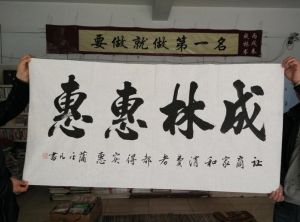 要做就做第一名
成林惠惠
让商家和消费者都得实惠